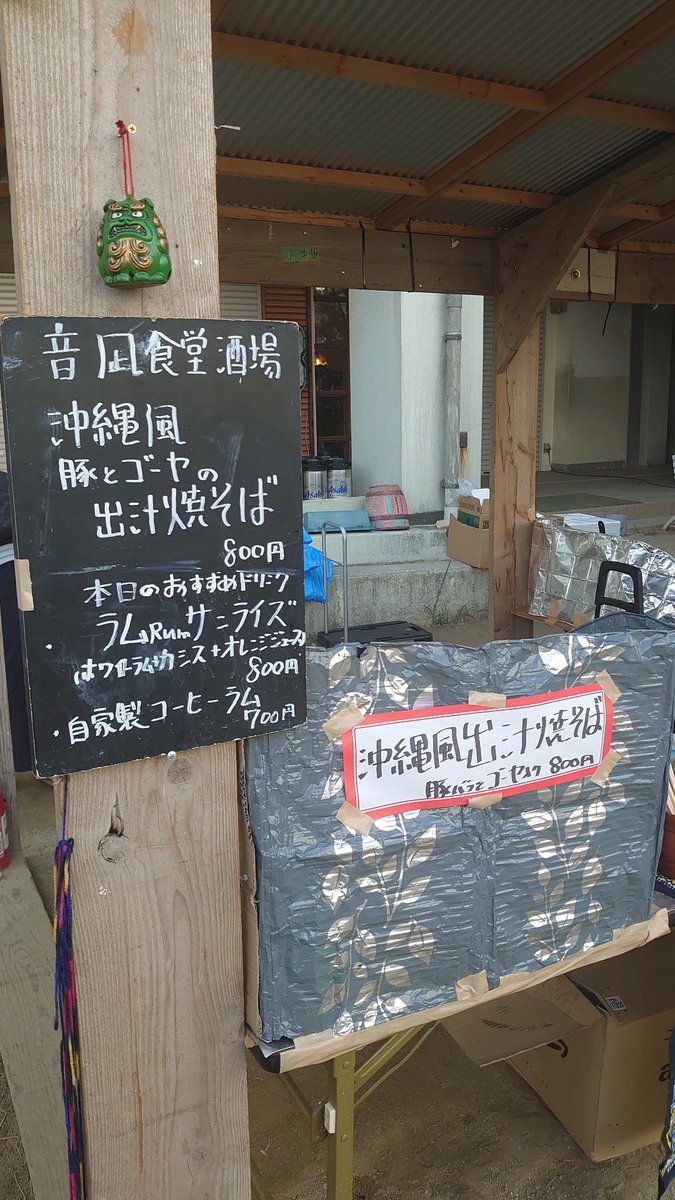 音凪食堂酒場
沖縄風
豚とゴーヤの
出汁焼そば
800円
本日のおすすめドリンク
・ラムRumサンライズ
(ホワイトラム+カシス+オレンジジュース)
800円
・自家製コーヒーラム
700円
沖縄風出汁焼そば
豚バラとゴーヤ入り 800円
Asahi
Asahi